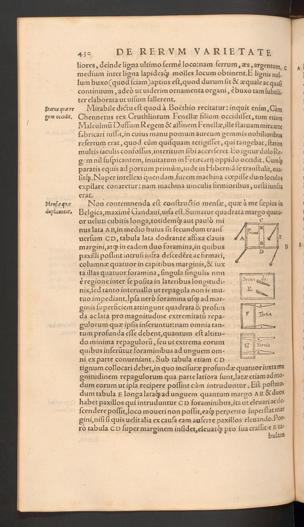 430 DE RERVM VARIETATE
liores, deinde ligna ultimo fermè loco: nam ferrum, æs, argentum,
medium inter ligna lapidesq́ molles locum obtinent. E lignis nul
lum buxo (quod sciam) aptius est, quod durum sit & æquale ac quasi
continuum, adeò ut uiderim ornamenta organi, è buxo tam subtili-
ter elaborata ut uisum fallerent.
Mirabile dictu est quod à Boëthio recitatur: inquit enim, Cùm
Chennetus rex Cruthlintum Fenellæ filium occidisset, tum etiam
Malcolmũ Duffum Regem & affinem Fenellæ, illa statuam mira arte
fabricari iussit, in cuius manu pomum aureum gemmis nobilioribus
refertum erat, quod cùm quisquam tetigisset, qui tangebat, statim
multis iaculis confossus, interitum sibi accerseret. Eo igitur dolo Re-
gem nil suspicantem, inuitatum in
paratis equis ad portum primùm, inde in Hiberniã se transtulit, eua-
sitq́. Nuper intellexi quendam, fucem machina cæpisse dum loculos
expilare conaretur: nam machina uinculis firmioribus, uersatilis
erat.
Non contemnenda est constructio mensæ, quæ à me sæpius in
Belgica, maximè Gandaui, uisa est. Sumatur quadrata margo quatu-
or ueluti cubitis longa, totidemq́ aut paulò mi
nus lata AB, in medio huius sit secundum trans
uersum CD, tabula lata dodrante affixa clauis
margini, atq́ in eadem duo foramina, in quibus
paxilli possint intrusi
columnæ quatuor in capitibus marginis, & iux
ta illas quatuor foramina, singula singulis
è regione inter se posita in lateribus longitudi-
nis, sed tanto interuallo ut repagula non se mu-
tuo impediant. Ipsa uerò foramina usq́ ad mar-
ginis superficiem attingunt quadrata & profun
da ac lata pro magnitudine extremitatis repa-
gulorum quæ ipsis inseruntur: nam omnia tan-
tum profunda esse debent, quantum est altitu-
do minima repagulorũ, seu ut extrema eorum
quibus inseruntur foraminibus ad unguem om-
ni ex parte conueniant. Sub tabula etiam CD
tignum collocari debet, in quo incisuræ profundæ quatuor iuxta ma
gnitudinem repagulorum qua parte latiora sunt, latæ etiam ad mo-
dum eorum ut ipsa recipere possint cùm intruduntur. Est postmo-
dum tabula E longa lataq́ ad unguem quantum margo AB & duos
habet paxillos qui intruduntur CD foraminibus, ita ut eleuari ac de-
scendere possit, loco moueri non possit, eaq́ perpetuò superstat mar
gini, nisi siquis uelit alia ex causa eam auferre paxillos eleuando. Por-
rò tabula CD supermarginem insidet, eleuatq́ pro sua crassitie E ta-
bulam
Statua quæ re
gem occidit.
Mensæ quæ
duplicantur.